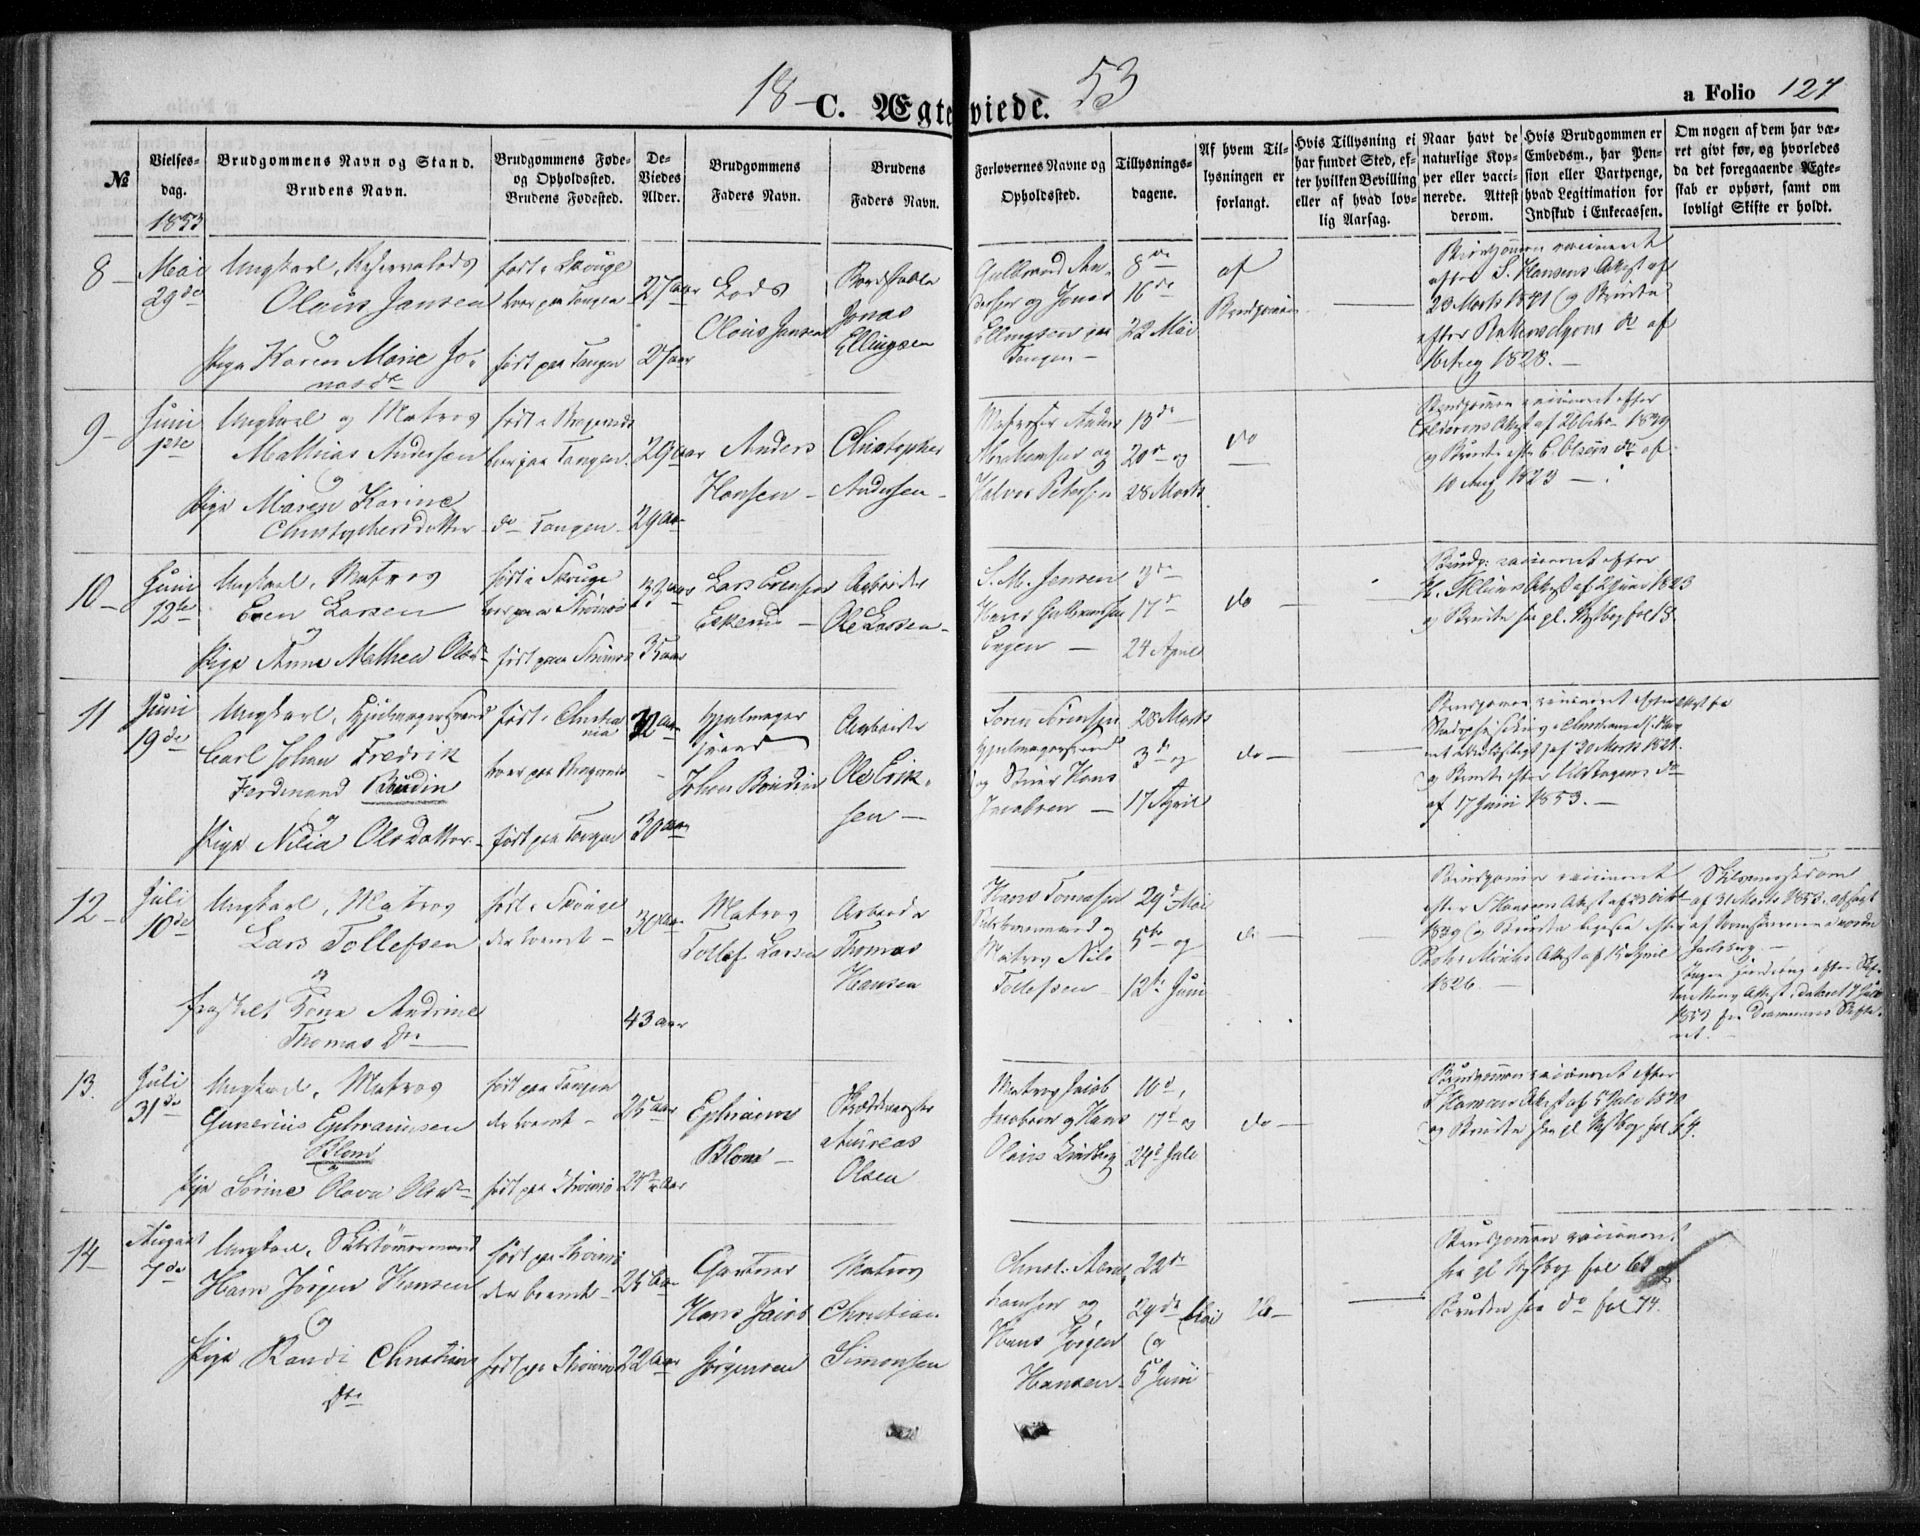 18 - 53
C. Ægteviede.
a Folio 127
№
Vielses-
dag.
Brudgommens Navn og Stand.
Brudens Navn.
Brudgommens Føde-
og Opholdssted.
Brudens Fødested.
De-
Viedes
Alder.
Brudgommens
Faders Navn.
Brudens
Faders Navn.
Forlovernes Navne og
Opholdssted.
Tillysnings-
dagene.
Af hvem Til-
lysningen er
forlangt.
Hvis Tillysning ei
har fundet Sted, ef-
ter hvilken Bevilling
eller af hvad lov-
lig Aarsag.
Naar havt de
naturlige Kop-
per eller vacci-
nerede. Attest
derom.
Hvis Brudgommen er
Embedsm., har Pen-
sion eller Vartpenge,
hvad Legitimation for
Indskud i Enkecassen.
Om nogen af dem har væ-
ret givt før, og hvorledes
da det foregaaende Ægte-
skab er ophørt, samt om
lovligt Skifte er holdt.
1853
8 -
Mai
29de
Ungkarl, Reservelods
Olaus Jansen
og
Pige Karen Marie Jo-
nasdr
født i Skouge
boer paa Tangen
født paa Tangen
27 aar
27 aar
Lods
Olaus Jansen
Jonas
Ellingsen
Gulbrand An-
dersen og Jonas
Ellingsen paa
Tangen -
8de
16de
22 Mai
af
Brudgomen
Brudgomen vaccineret
efter S. Hansens Attest af
23 Marts 1841 og Bruden
af
1828. -
9 -
Juni
Ungkarl og Matros
Mathias Andersen
og
Pige Maren Karine
Christophersdatter
født i Bragernes
boer paa Tangen.
do Tangen -
29 aar
29 aar
Anders
Hansen -
Christopher
Andersen -
Matroser Anders
Abrahamsen og
Halvor Petersen
13de
20de og
28 Marts
do
Brudgomen vaccineret efter
1839
og Bruden efter C. Olsens do af
10 Aug 1823 -
10 -
Juni
12te
Ungkarl, Matros
Even Larsen
og
Pige Anne Mathea Olsdr
født i Skouge
boer paa Strømsø
født paa Strømsø
33 aar
35 aar
Lars Evensen
Eskerud -
Arbeider
Ole Larsen -
S. M. Jensen
Hans Gulbrandsen
Engen -
3de
17de
24 April
do
Brudg. vaccineret efter
1823
og Bruden see gl. fol 18.
11
Juni
19de
Ungkarl, Hjulmagersvend
Carl Johan Fredrik
Ferdinand Boudin
og
Pige Nilia Olsdatter
født i Christia
nia
boer paa Bragernes
født paa Tangen
30 aar
Hjulmager
svend
Johan Boudin
Arbeider
Ole Erik-
sen -
Søren Sørensen
Hjulmagersvend
og Hans
Jacobsen -
28 Marts
3de og
17 April
do -
Brudgomen vaccineret efter Attest fra
af 30 Marts 1821.
og Bruden efter
af 17 Juni 1853. -
12 -
Juli
10de
Ungkarl, Matros
Lars Tollefsen
og
fraskilt Tone Andrine
Thomas Dtr
født i Skouge
30 aar
43 aar
Matros
Tollef Larsen
Arbeider
Thomas
Hansen
Hans Tomasen
og
Matros Nils
Tollefsen -
29de Mai
5te og
12te Juni
do -
Brudgomen vaccineret
efter S Hansens Attest af 23
1839 og Bruden ligesaa efter
Attest af 15 April
1826 -
af 31 Marts 1853
Jarlsberg. -
Ingen
1853 fra Drammens Skifte-
ret. -
13.
Juli
31de
Ungkarl, Matros
Gunerius Ephraimsen
Blom
og
Pige Sørine Olava Olsdr
født paa Tangen
født paa Strømsø
25 aar
Ephraim
Blom -
Andreas
Olsen
Matros Jacob
Jacobsen og Hans
Olaus Lindberg
10de,
17de og
24de Juli
do -
Brudgomen vaccineret efter
S Hansens Attest af
og Bruden see gl fol 64.
14 -
August
7de
Ungkarl, Skibstømmermand
Hans Jørgen Hansen
og
Pige Randi Christians
Dtr
født paa Strømsø
født paa Strømsø
25 aar
22 aar
Gartner
Hans Jacob
Jørgensen
Matros
Christian
Simonsen
og
Hans Jørgen
Hansen -
22de
29de Mai
og
5te Juni
do -
Brudgomen vaccineret
see gl fol 68 og
Bruden see do fol 74.